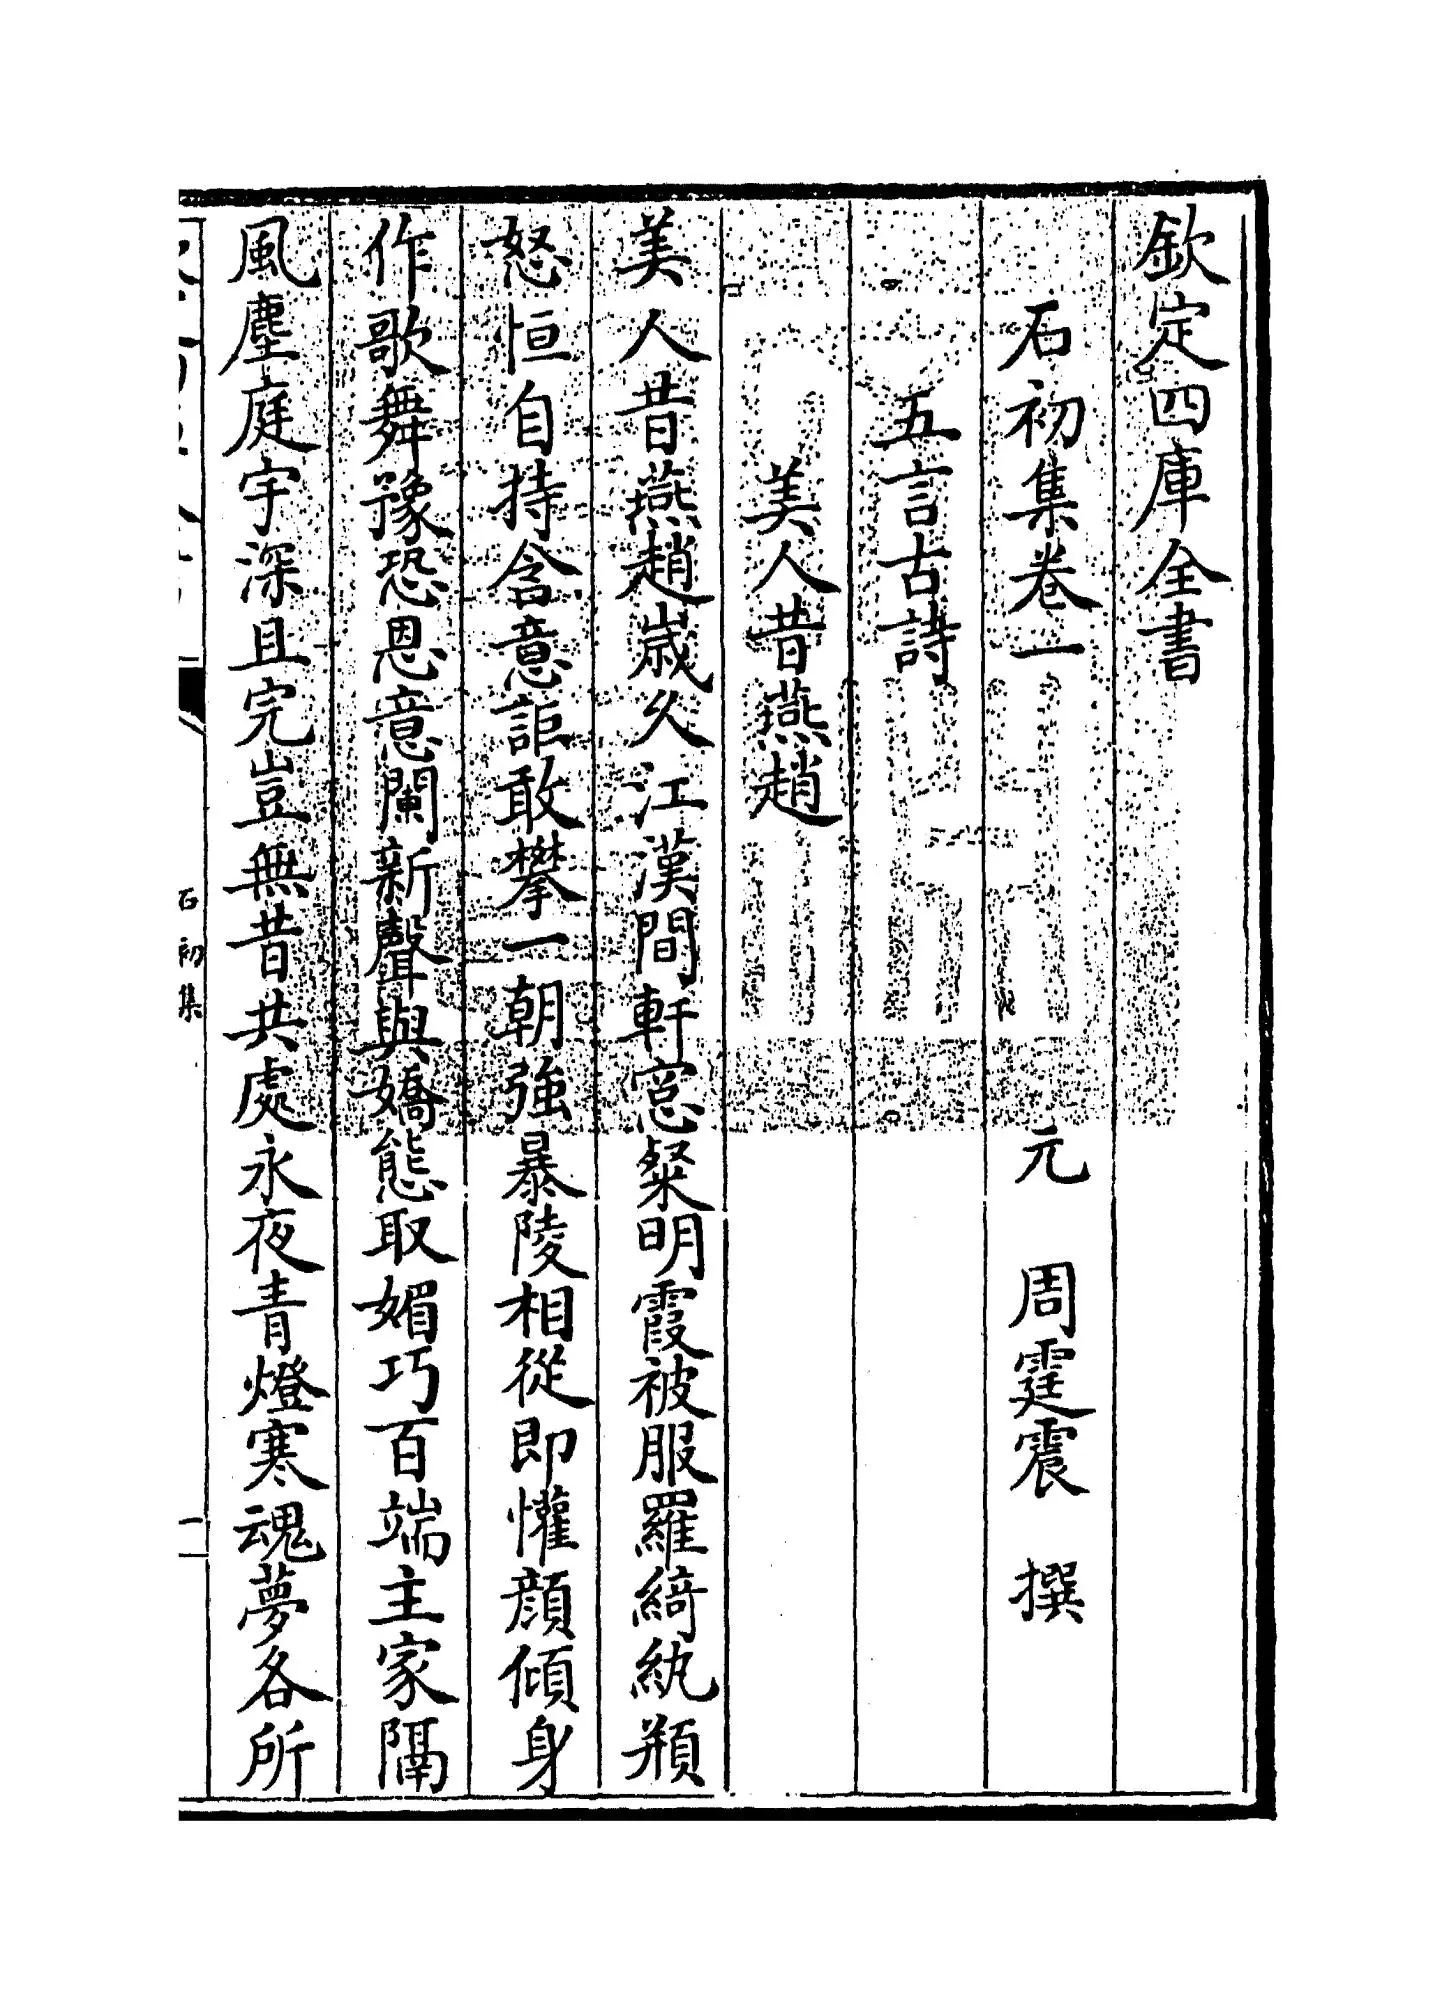 欽定四庫全書
石初集卷一 元 周霆震 撰
五言古詩
美人昔燕趙
美人昔燕趙歳久江漢間軒窓粲明霞被服羅綺紈頩
怒恒自持含意詎敢攀一朝強暴陵相從即懽顔傾身
作歌舞豫恐恩意闌新聲與嬌態取媚巧百端主家隔
風塵庭宇深且完豈無昔共處永夜青燈寒魂夢各所
石初集
一